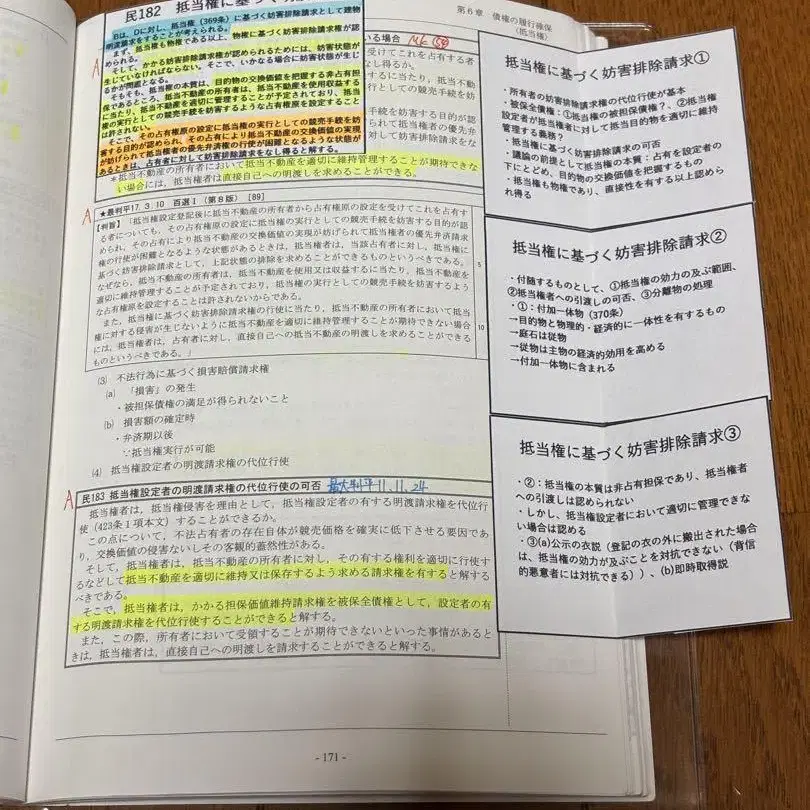 第6章 債権の履行確保
(抵当権)
民182 抵当権に基づく
Bは、Dに対し、抵当権(369条)に基づく妨害排除請求として建物
明渡請求をすることが考えられる。
まず、抵当権も物権である以上、物権に基づく妨害排除請求権が認
められる。
そして、かかる妨害排除請求権が認められるためには、妨害状態が
生じていなければならない。そこで、いかなる場合に妨害状態が生じ
るかが問題となる。
そもそも、抵当権の本質は、目的物の交換価値を把握する非占有担
保であるところ、抵当不動産の所有者は、抵当不動産を使用収益する
に当たり、抵当不動産を適切に管理することが予定されており、抵当
権の実行としての競売手続を妨害するような占有権原を設定すること
は許されない。
そこで、その占有権原の設定に抵当権の実行としての競売手続を妨
害する目的が認められ、その占有により抵当不動産の交換価値の実現
が妨げられて抵当権者の優先弁済権の行使が困難となるような状態が
あるときは、占有者に対して妨害排除請求をなし得ると解する。
いる場合
受けてこれを占有する者
なし得るか。
するに当たり、抵当不動
権の実行としての競売手続を妨
手続を妨害する目的が認め
られて抵当権者の優先弁
対して妨害排除請求をな
*抵当不動産の所有者において抵当不動産を適切に維持管理することが期待できな
い場合には、抵当権者は直接自己への明渡しを求めることができる。
A
★最判平17.3.10 百選Ⅰ(第8版)[89]
【判旨】「抵当権設定登記後に抵当不動産の所有者から占有権原の設定を受けてこれを占有す
る者についても、その占有権原の設定に抵当権の実行としての競売手続を妨害する目的が認
められ、その占有により抵当不動産の交換価値の実現が妨げられて抵当権者の優先弁済請求
権の行使が困難となるような状態があるときは、抵当権者は、当該占有者に対し、抵当権に
基づく妨害排除請求として、上記状態の排除を求めることができるものというべきである。
なぜなら、抵当不動産の所有者は、抵当不動産を使用又は収益するに当たり、抵当不動産を
適切に維持管理することが予定されており、抵当権の実行としての競売手続を妨害するよう
な占有権原を設定することは許されないからである。
また、抵当権に基づく妨害排除請求権の行使に当たり、抵当不動産の所有者において抵当
権に対する侵害が生じないように抵当不動産を適切に維持管理することが期待できない場合
には、抵当権者は、占有者に対し、直接自己への抵当不動産の明渡しを求めることができる
ものというべきである。」
5
10
(3) 不法行為に基づく損害賠償請求権
(a) 「損害」の発生
・被担保債権の満足が得られないこと
(b) 損害額の確定時
・弁済期以後
∵抵当権実行が可能
(4) 抵当権設定者の明渡請求権の代位行使
A
民183 抵当権設定者の明渡請求権の代位行使の可否 最大判平11.11.24
抵当権者は、抵当権侵害を理由として、抵当権設定者の有する明渡請求権を代位行
使(423条1項本文)することができるか。
この点について、不法占有者の存在自体が競売価格を確実に低下させる要因であ
り、交換価値の侵害ないしその客観的蓋然性がある。
そして、抵当権者は、抵当不動産の所有者に対し、その有する権利を適切に行使す
るなどして抵当不動産を適切に維持又は保存するよう求める請求権を有すると解する
べきである。
そこで、抵当権者は、かかる担保価値維持請求権を被保全債権として、設定者の有
する明渡請求権を代位行使することができると解する。
また、この際、所有者において受領することが期待できないといった事情があると
きは、抵当権者は、直接自己への明渡しを請求することができると解する。
- 171 -
抵当権に基づく妨害排除請求①
・所有者の妨害排除請求権の代位行使が基本
・被保全債権:①抵当権の被担保債権?、②抵当権
設定者が抵当権者に対して抵当目的物を適切に維持
管理する義務?
・抵当権に基づく妨害排除請求の可否
・議論の前提として抵当権の本質:占有を設定者の
下にとどめ、目的物の交換価値を把握するもの
・抵当権も物権であり、直接性を有する以上認めら
れ得る
抵当権に基づく妨害排除請求②
・付随するものとして、①抵当権の効力の及ぶ範囲、
②抵当権者への引渡しの可否、③分離物の処理
・①:付加一体物(370条)
→目的物と物理的・経済的に一体性を有するもの
→庭石は従物
→従物は主物の経済的効用を高める
→付加一体物に含まれる
抵当権に基づく妨害排除請求③
・②:抵当権の本質は非占有担保であり、抵当権者
への引渡しは認められない
・しかし、抵当権設定者において適切に管理できな
い場合は認める
・③(a)公示の衣説(登記の衣の外に搬出された場合
は、抵当権の効力が及ぶことを対抗できない(背信
的悪意者には対抗できる))、(b)即時取得説